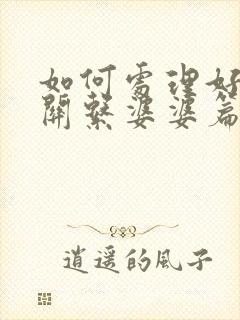 如何處理好
關繫婆婆篇
逍遥的風子